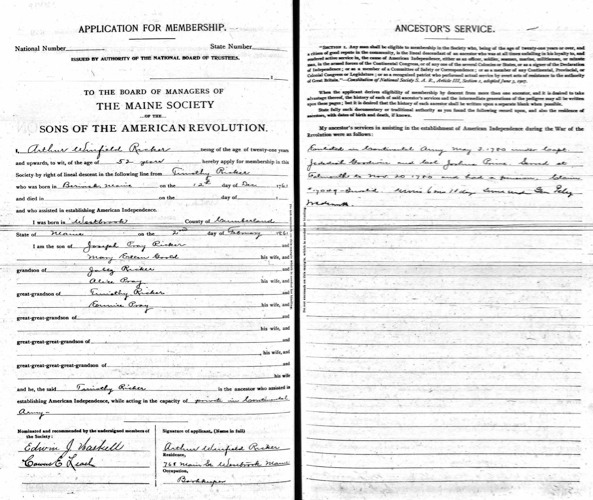 APPLICATION FOR MEMBERSHIP.
National Number State Number
ISSUED BY AUTHORITY OF THE NATIONAL BOARD OF TRUSTEES.
TO THE BOARD OF MANAGERS OF
THE MAINE SOCIETY
...OF THE...
SONS OF THE AMERICAN REVOLUTION.
I, Arthur Winfield Ricker being of the age of twenty-one years
and upwards, to wit, of the age of 52 years hereby apply for membership in this
Society by right of lineal descent in the following line from Timothy Ricker
who was born in Berwick Maine on the 1st day of Dec 1761
and died in on the day of
and who assisted in establishing American Independence.
I was born in Westbrook County of Cumberland
State of Maine on the 2nd day of February 1861
I am the son of Joseph Pray Ricker and
Mary Ellen Gould his wife, and
grandson of Jabez Ricker and
Alice Pray his wife, and
great-grandson of Timothy Ricker and
Pray his wife, and
great-great-grandson of and
his wife, and
great-great-great-grandson of and
, his wife, and
great-great-great-great-grandson of and
his wife
and he, the said Timothy Ricker is the ancestor who assisted in
establishing American Independence, while acting in the capacity of private in Continental
Army.
Nominated and recommended by the undersigned members of
the Society:
Edwin J Haskell
E Leach
Signature of applicant, (Name in full)
Arthur Winfield Ricker
Residence,
768 Main St Westbrook Maine
Occupation,
Bookkeeper
ANCESTOR'S SERVICE.
"SECTION 1. Any man shall be eligible to membership in the Society who, being of the age of twenty-one years or over, and
a citizen of good repute in the community, is the lineal descendant of an ancestor who was at all times unfailing in his loyalty to, and
rendered active service in, the cause of American Independence, either as an officer, soldier, seaman, marine, militiaman, or minute
man, in the armed forces of the Continental Congress, or of any one of the several Colonies or States, or as a signer of the Declaration
of Independence; or as a member of a Committee of Safety or Correspondence; or as a member of any Continental, Provincial, or
Colonial Congress or Legislature; or as a recognized patriot who performed actual service by overt acts of resistance to the authority
of Great Britain."—Constitution of National Society S. A. R., Article III, Section 1, adopted June 3, 1907.
When the applicant derives eligibility by descent from more than one ancestor, and it is desired to take
advantage thereof, the history of each of said ancestor's services and the immediate generations of the pedigree may all be written
upon these pages; but it is desired that the history of each ancestor shall be written upon a separate blank when possible.
State fully such documentary or traditional authority as you found the following record upon, and also the residence of
ancestors, with dates of birth and death, if known.
My ancestor's services in assisting in the establishment of American Independence during the War of the
Revolution were as follows:
Enlisted in Continental Army May 2-1780 under Capt
Jedediah Goodwin and Col Joshua Prime Served at
Falmouth to Nov 20 1780 and had a pension. Claim
Service 6 mo 18 day Served under Gen Peleg
Wadsworth.